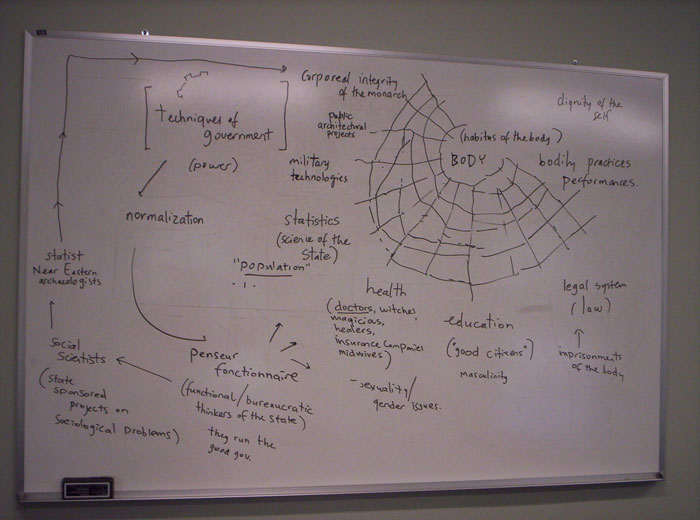 Corporeal integrity
of the monarch
dignity of the
self
[techniques of
government]
public
architectural
projects
(habitus of the body)
BODY
bodily practices
performances.
(power)
military
technologies
normalization
statistics
(science of the
State)
"population"
statist
Near Eastern
archaeologists
health
(doctors, witches,
magicious,
healers,
insurance companies
midwives)
- sexuality/
gender issues.
education
("good citizens")
masculinity
legal system
(law)
imprisonments
of the body
Social
Scientists
(state
sponsored
projects on
Sociological Problems)
penseur
fonctionnaire
(functional/bureaucratic
thinkers of the state)
they run the
good gov.